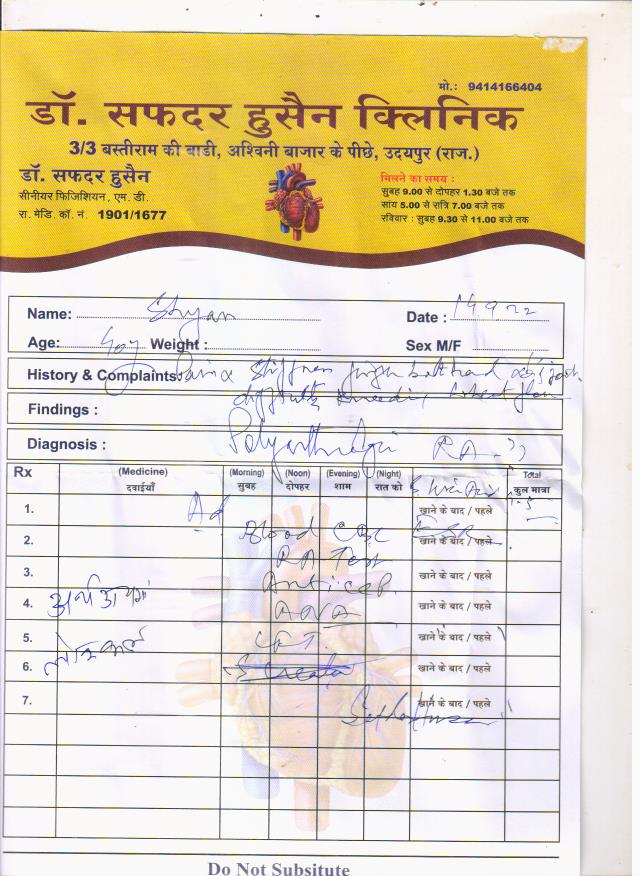 मो.: 9414166404
डॉ. सफदर हुसैन क्लिनिक
3/3 बस्तीराम की बाडी, अश्विनी बाजार के पीछे, उदयपुर (राज.)
डॉ. सफदर हुसैन
सीनीयर फिजिशियन, एम. डी.
रा. मेडि. कॉ. नं. 1901/1677
मिलने का समय :
सुबह 9.00 से दोपहर 1.30 बजे तक
सांय 5.00 से रात्रि 7.00 बजे तक
रविवार : सुबह 9.30 से 11.00 बजे तक
Name: Shyam
Date : 14.9.22
Age: 40y Weight :
Sex M/F
History & Complaints: Pain & Stiffness
Findings :
Diagnosis : Polyarthralgia RA ??
Rx (Medicine) (Morning) (Noon) (Evening) (Night) Total
दवाईयाँ सुबह दोपहर शाम रात को कुल मात्रा
S Uric Acid
1. Ad खाने के बाद / पहले
2. Blood CBC ESR खाने के बाद / पहले
RA Test
3. खाने के बाद / पहले
Anti ccp.
4. ANA खाने के बाद / पहले
5. खाने के बाद / पहले
6. खाने के बाद / पहले
7. खाने के बाद / पहले
Do Not Subsitute